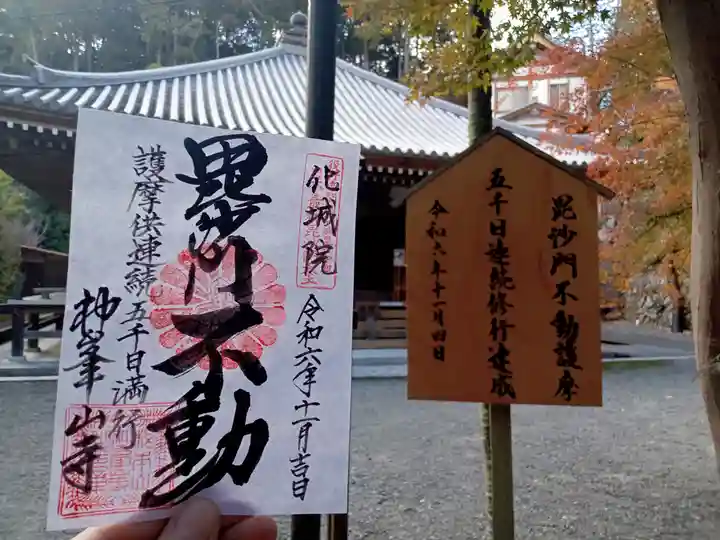 化城院
令和六年十一月吉日
毘沙門不動
護摩供連続五千日満行
神峯山寺
毘沙門不動護摩
五千日連続修行達成
令和六年十一月四日